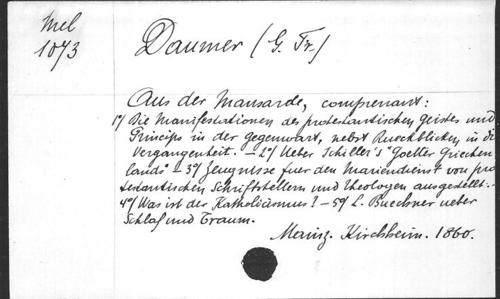 Mel
1073
Daumer (G. Fr.)
Aus der Mansarde, comprenant:
1°/ Die Manifestationen des protestantischen Geistes und
Princips in der gegenwart, nebst Rueckblicken in die
Vergangenheit. - 2°/ Ueber Schiller's "Goetter Griechen
lands" - 3°/ Zeugnisse fuer den Mariendienst von pro
testantischen Schriftstellern und Theologen ausgestellt. -
4°/ Was ist der Katholicismus? - 5°/ L. Buechner ueber
Schlaf und Traum.
Mainz. Kirchheim. 1860.